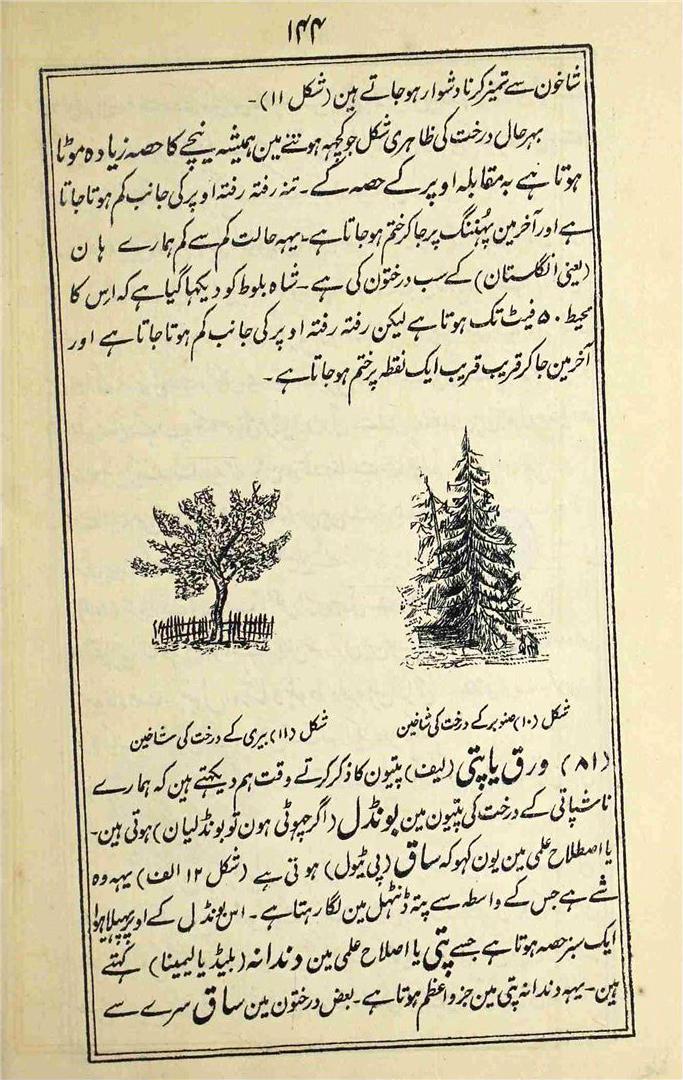 ۱۴۴
شاخون سے تمیز کرنا دشوار ہوجاتے ہین (شکل ۱۱)۔
بہرحال درخت کی ظاہری شکل جو کچہہ ہو تنے مین ہمیشہ نیچے کا حصہ زیادہ موٹا
ہوتا ہے بہ مقابلہ اوپر کے حصہ کے۔ تنہ رفتہ رفتہ اوپر کی جانب کم ہوتا جاتا
ہے اور آخر مین پہننگ پر جاکر ختم ہوجاتا ہے۔ یہہ حالت کم سے کم ہمارے ہان
(یعنی انگلستان) کے سب درختون کی ہے۔ شاہ بلوط کو دیکہا گیا ہے کہ اس کا
محیط ۵۰ فیٹ تک ہوتا ہے لیکن رفتہ رفتہ اوپر کی جانب کم ہوتا جاتا ہے اور
آخر مین جاکر قریب قریب ایک نقطہ پر ختم ہوجاتا ہے۔
شکل (۱۰) صنوبر کے درخت کی شاخین
شکل (۱۱) بیری کے درخت کی شاخین
(۸۱) ورق یا پتی (لیف) پتیون کا ذکر کرتے وقت ہم دیکہتے ہین کہ ہمارے
ناشپاتی کے درخت کی پتیون مین بونڈل (اگر چہوٹی ہون تو بونڈلیان) ہوتی ہین۔
یا اصطلاح علمی مین یون کہو کہ ساق (پی ٹیول) ہوتی ہے (شکل ۱۲ الف) یہہ وہ
شے ہے جس کے واسطہ سے پتہ ڈنٹہل مین لگا رہتا ہے۔ اس بونڈل کے اوپر پہیلا ہوا
ایک سبز حصہ ہوتا ہے جسے پتی یا اصلاح علمی مین دندانہ (بلیڈ یا لیمینا) کہتے
ہین۔ یہہ دندانہ پتی مین جزو اعظم ہوتا ہے۔ بعض درختون مین ساق سرے سے